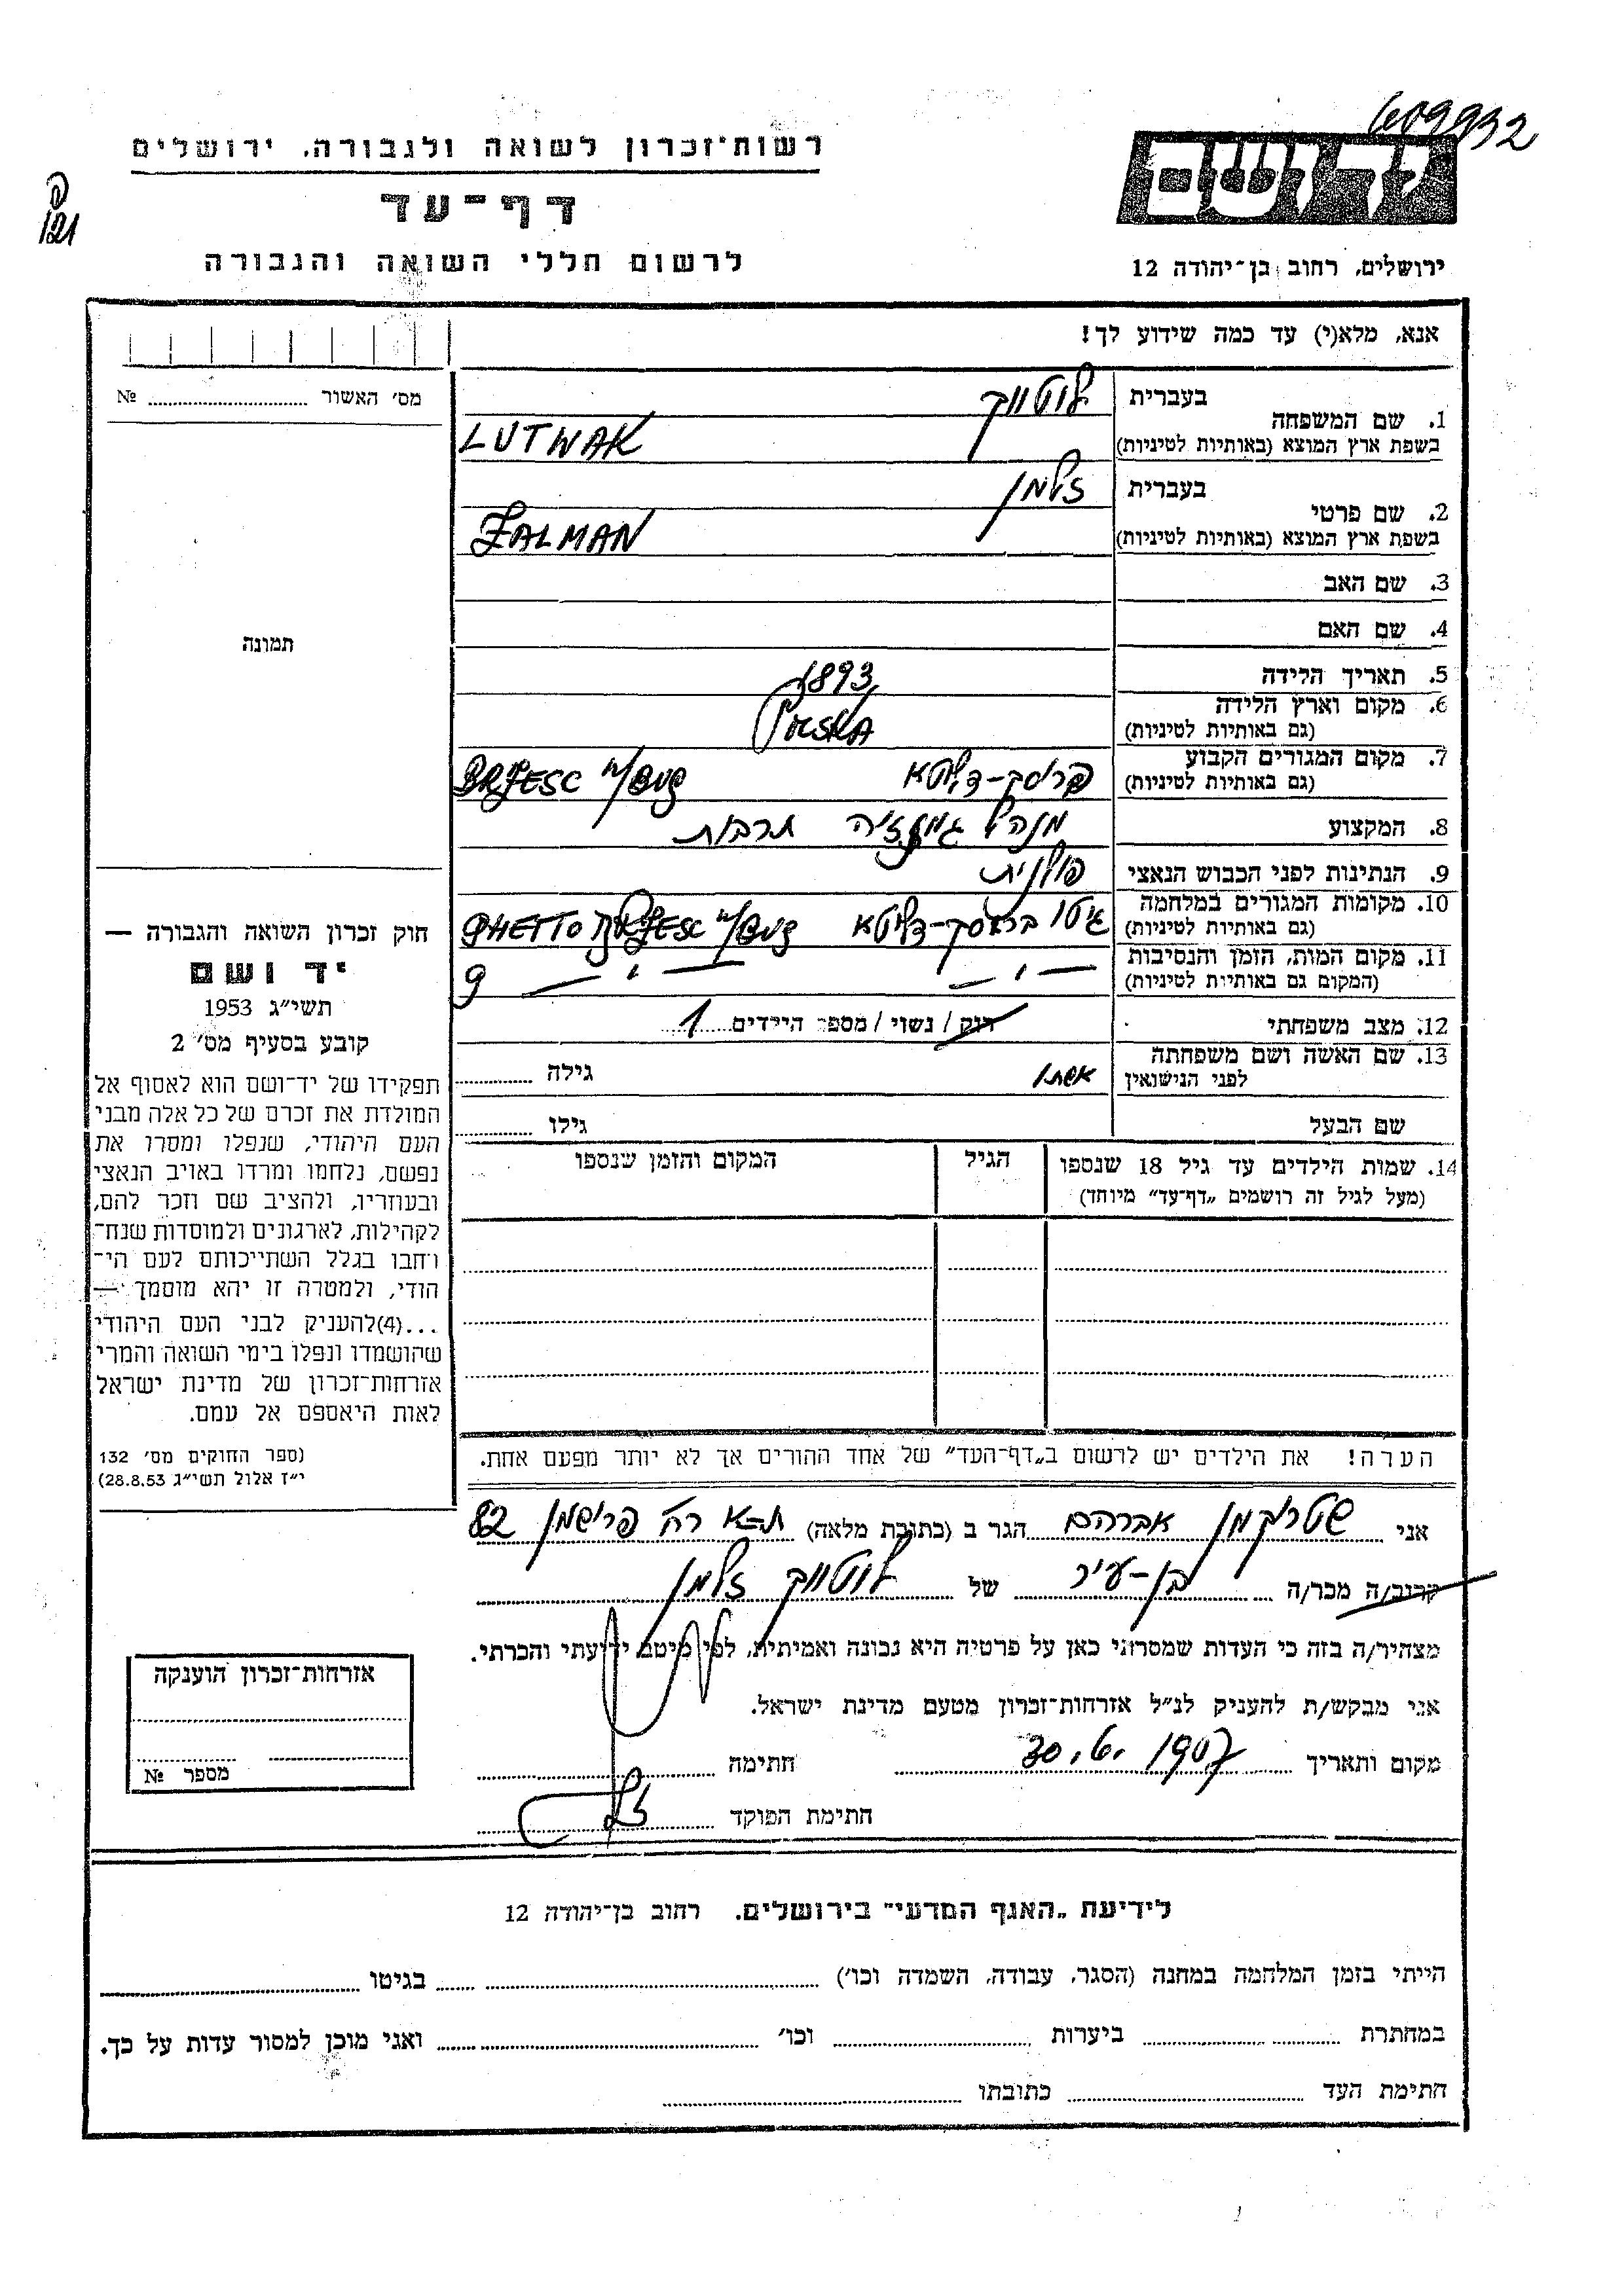 609932
יד ושם
ירושלים, רחוב בן־יהודה 12
רשות־זכרון לשואה ולגבורה, ירושלים
דף־עד
לרשום חללי השואה והגבורה
121
אנא, מלא(י) עד כמה שידוע לך!
1. שם המשפחה בעברית לוטווק
בשפת ארץ המוצא (באותיות לטיניות) LUTWAK
2. שם פרטי בעברית זלמן
בשפת ארץ המוצא (באותיות לטיניות) ZALMAN
3. שם האב
4. שם האם
5. תאריך הלידה 1893
6. מקום וארץ הלידה (גם באותיות לטיניות) POLSKA
7. מקום המגורים הקבוע (גם באותיות לטיניות) בריסק-דליטא BRZESC n/BUG
8. המקצוע מנהל גמנזיה תרבות
9. הנתינות לפני הכבוש הנאצי פולנית
10. מקומות המגורים במלחמה (גם באותיות לטיניות) גיטו בריסק-דליטא GHETTO BRZESC n/BUG
11. מקום המות, הזמן והנסיבות (המקום גם באותיות לטיניות) — " — — " —
12. מצב משפחתי רוק / נשוי / מספר הילדים 1
13. שם האשה ושם משפחתה לפני הנישואין אשתו גילה
שם הבעל גילו
14. שמות הילדים עד גיל 18 שנספו הגיל המקום והזמן שנספו
(מעל לגיל זה רושמים „דף־עד" מיוחד)
הערה! את הילדים יש לרשום ב„דף־העד" של אחד ההורים אך לא יותר מפעם אחת.
אני שטרקמן אברהם הגר ב (כתובת מלאה) ת-א רח' פרישמן 82
קרוב/ה מכר/ה בן-עיר של לוטווק זלמן
מצהיר/ה בזה כי העדות שמסרתי כאן על פרטיה היא נכונה ואמיתית, לפי מיטב ידיעתי והכרתי.
אני מבקש/ת להעניק לנ״ל אזרחות־זכרון מטעם מדינת ישראל.
מקום ותאריך 30.6.1957 חתימה
חתימת הפוקד
מס׳ האשור № 
תמונה
חוק זכרון השואה והגבורה —
יד ושם
תשי״ג 1953
קובע בסעיף מס׳ 2
תפקידו של יד־ושם הוא לאסוף אל
המולדת את זכרם של כל אלה מבני
העם היהודי, שנפלו ומסרו את
נפשם, נלחמו ומרדו באויב הנאצי
ובעוזריו, ולהציב שם וזכר להם,
לקהילות, לארגונים ולמוסדות שנח־
רבו בגלל השתייכותם לעם הי־
הודי, ולמטרה זו יהא מוסמך —
...(4)להעניק לבני העם היהודי
שהושמדו ונפלו בימי השואה והמרי
אזרחות־זכרון של מדינת ישראל
לאות היאספם אל עמם.
(ספר החוקים מס׳ 132
י״ז אלול תשי״ג 28.8.53)
אזרחות־זכרון הוענקה
מספר №
לידיעת „האגף המדעי" בירושלים, רחוב בן־יהודה 12
הייתי בזמן המלחמה במחנה (הסגר, עבודה, השמדה וכו׳) בגיטו
במחתרת ביערות וכו׳ ואני מוכן למסור עדות על כך.
חתימת העד כתובתו